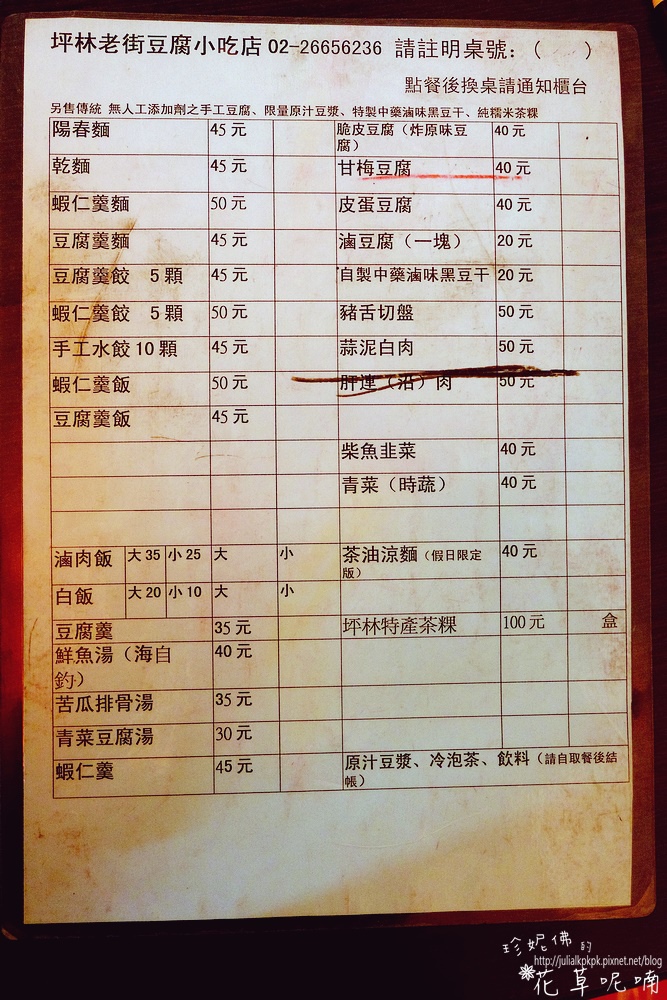 坪林老街豆腐小吃店 02-26656236 請註明桌號：（ ）
點餐後換桌請通知櫃台
另售傳統 無人工添加劑之手工豆腐、限量原汁豆漿、特製中藥滷味黑豆干、純糯米茶粿
陽春麵 45 元 脆皮豆腐（炸原味豆
腐） 40 元
乾麵 45 元 甘梅豆腐 40 元
蝦仁羹麵 50 元 皮蛋豆腐 40 元
豆腐羹麵 45 元 滷豆腐（一塊） 20 元
豆腐羹餃 5 顆 45 元 自製中藥滷味黑豆干 20 元
蝦仁羹餃 5 顆 50 元 豬舌切盤 50 元
手工水餃 10 顆 45 元 蒜泥白肉 50 元
蝦仁羹飯 50 元 肝連（沿）肉 50 元
豆腐羹飯 45 元
柴魚韭菜 40 元
青菜（時蔬） 40 元
滷肉飯 大 35 小 25 大 小 茶油涼麵（假日限定
版） 40 元
白飯 大 20 小 10 大 小
豆腐羹 35 元 坪林特產茶粿 100 元 盒
鮮魚湯（海自
釣） 40 元
苦瓜排骨湯 35 元
青菜豆腐湯 30 元
蝦仁羹 45 元 原汁豆漿、冷泡茶、飲料（請自取餐後結
帳）
珍妮佛的
http://julialkpkpk.pixnet.net/blog
花草呢喃